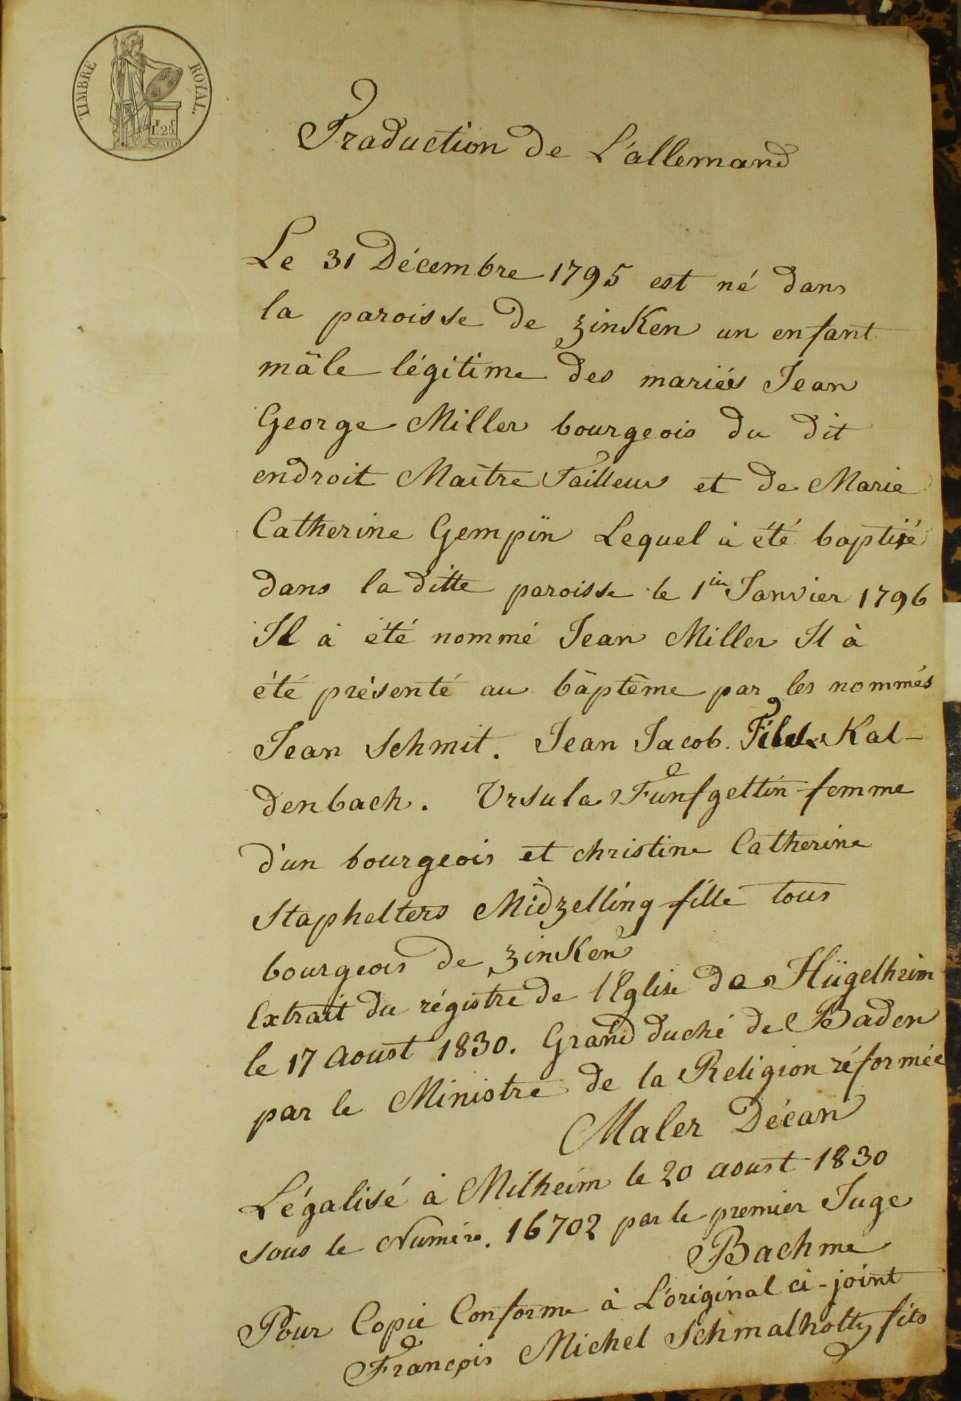 TIMBRE ROYAL.
Traduction de L'allemand
Le 31 Décembre 1795 est né dans
la paroisse de zinKen un enfant
mâle légitime des mariés Jean
George Miller bourgeois du dit
endroit Maître Tailleur et de Marie
Catherine Gempin Lequel à été baptisé
dans la ditte paroisse le 1ier Janvier 1796
Il à été nommé Jean Miller Il à
été présenté au bâptême par les nommés
Jean Schmit. Jean Jacob. Kal-
denbach. Ursula Funfgeltin femme
d'un bourgeois et christine Catherine
Staphelters Midzelling fille tous
bourgeois de zinKen
Extrait du régistre de l'Eglise de Hügelheim
le 17 Aoust 1830. Grand duché de Baden
par le Ministre de la Religion réformée
Maler Décan
Légalisé à Milheim le 20 aoust 1830
sous le Numéro. 16702 par le premier Juge
Bachme
Pour Copie Conforme à L'original ci-joint
François Michel Schmalholtz fils